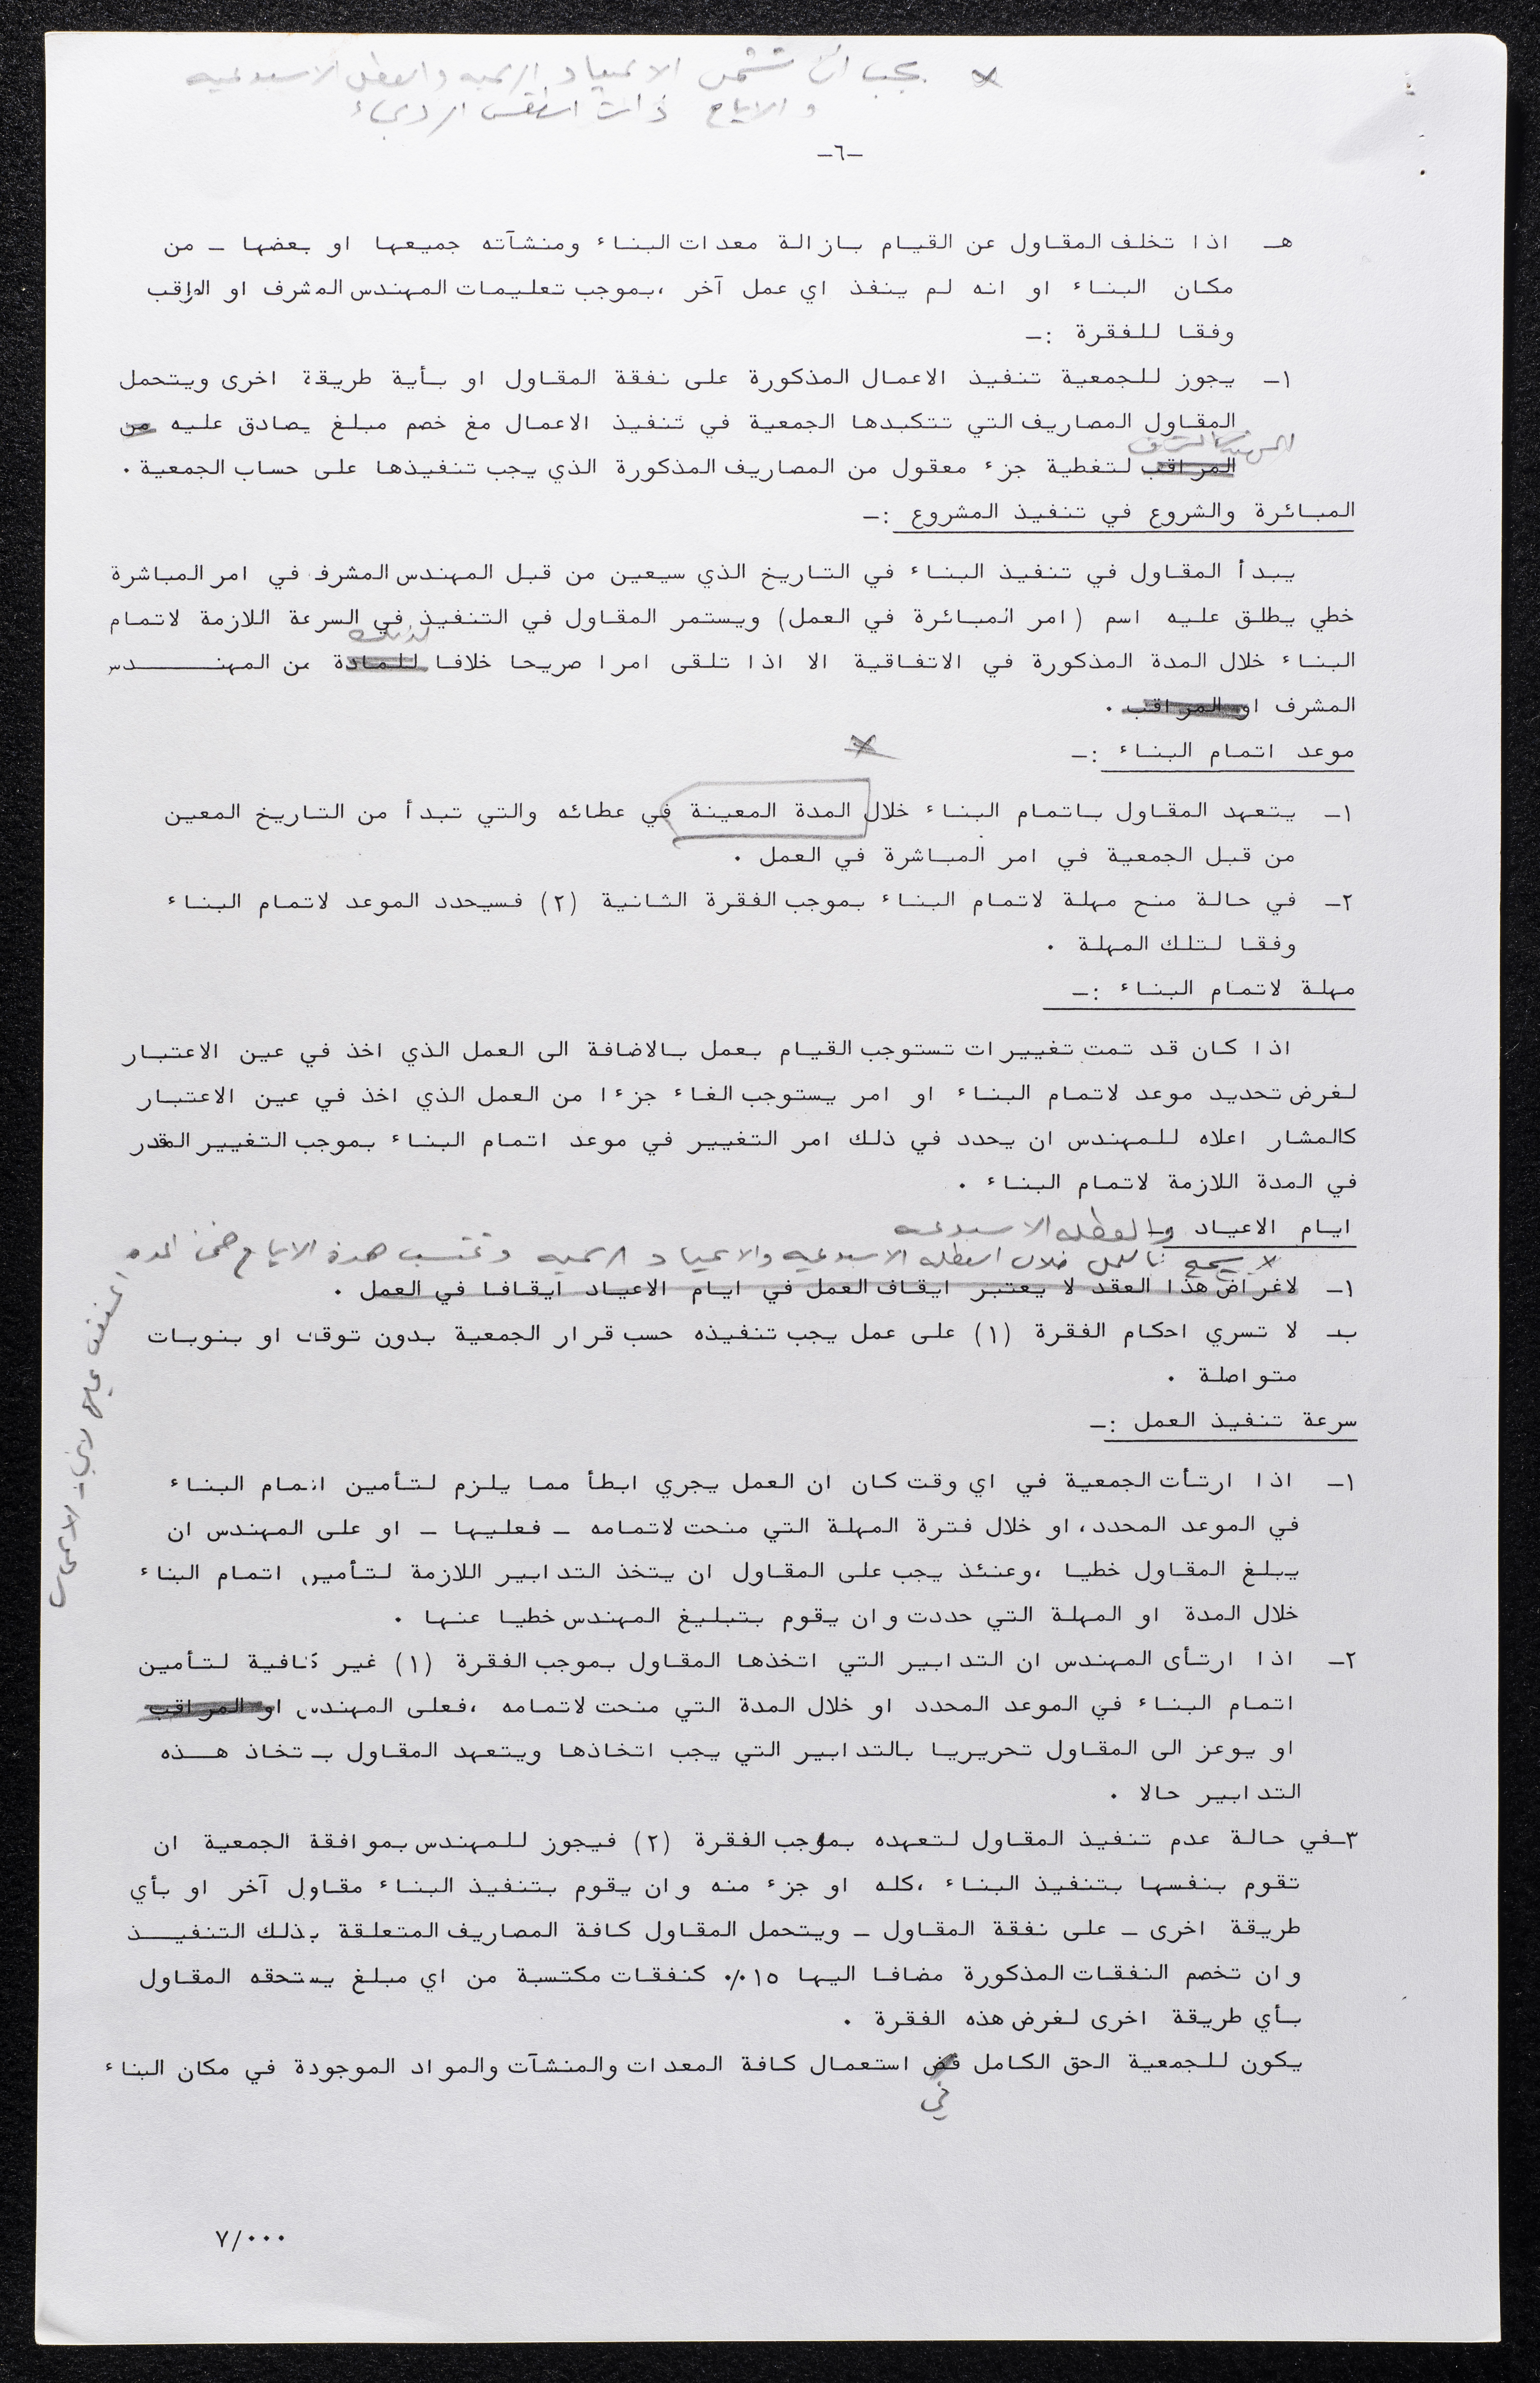 × يجب ان تشمل الاعياد الرسميه والعطل الاسبوعيه
و الايام ذات الطقس الرديء
-٦-
هـ اذا تخلف المقاول عن القيام بازالة معدات البناء ومنشآته جميعها او بعضها - من
مكان البناء او انه لم ينفذ اي عمل آخر ،بموجب تعليمات المهندس المشرف او المراقب
وفقا للفقرة :-
١- يجوز للجمعية تنفيذ الاعمال المذكورة على نفقة المقاول او بأية طريقة اخرى ويتحمل
المقاول المصاريف التي تتكبدها الجمعية في تنفيذ الاعمال مغ خصم مبلغ يصادق عليه من
المهندس المشرف
المراقب لتغطية جزء معقول من المصاريف المذكورة الذي يجب تنفيذها على حساب الجمعية .
المبائرة والشروع في تنفيذ المشروع :-
يبدأ المقاول في تنفيذ البناء في التاريخ الذي سيعين من قبل المهندس المشرف في امر المباشرة
خطي يطلق عليه اسم (امر المبائرة في العمل) ويستمر المقاول في التنفيذ في السرعة اللازمة لاتمام
لذلك
البناء خلال المدة المذكورة في الاتفاقية الا اذا تلقى امرا صريحا خلافا للمادة من المهنـــدس
المشرف او المراقب .
موعد اتمام البناء :-
×
١- يتعهد المقاول باتمام البناء خلال المدة المعينة في عطائه والتي تبدأ من التاريخ المعين
من قبل الجمعية في امر المباشرة في العمل .
٢- في حالة منح مهلة لاتمام البناء بموجب الفقرة الثانية (٢) فسيحدد الموعد لاتمام البناء
وفقا لتلك المهلة .
مهلة لاتمام البناء :-
اذا كان قد تمت تغييرات تستوجب القيام بعمل بالاضافة الى العمل الذي اخذ في عين الاعتبار
لغرض تحديد موعد لاتمام البناء او امر يستوجب الغاء جزءا من العمل الذي اخذ في عين الاعتبار
كالمشار اعلاه للمهندس ان يحدد في ذلك امر التغيير في موعد اتمام البناء بموجب التغيير المقدر
في المدة اللازمة لاتمام البناء .
ايام الاعياد والعطله الاسبوعيه
لا يسمح بالعمل خلال العطله الاسبوعيه والاعياد الرسميه وتحتسب هذة الايام ضمن المده
المتفق عليها لانهاء الاعمال
١- لاغراض هذا العقد لا يعتبر ايقاف العمل في ايام الاعياد ايقافا في العمل .
ب- لا تسري احكام الفقرة (١) على عمل يجب تنفيذه حسب قرار الجمعية بدون توقف او بنوبات
متواصلة .
سرعة تنفيذ العمل :-
١- اذا ارتأت الجمعية في اي وقت كان ان العمل يجري ابطأ مما يلزم لتأمين اتمام البناء
في الموعد المحدد، او خلال فترة المهلة التي منحت لاتمامه - فعليها - او على المهندس ان
يبلغ المقاول خطيا ،وعنئذ يجب على المقاول ان يتخذ التدابير اللازمة لتأمين اتمام البناء
خلال المدة او المهلة التي حددت وان يقوم بتبليغ المهندس خطيا عنها .
٢- اذا ارتأى المهندس ان التدابير التي اتخذها المقاول بموجب الفقرة (١) غير كافية لتأمين
اتمام البناء في الموعد المحدد او خلال المدة التي منحت لاتمامه ،فعلى المهندس او المراقب
او يوعز الى المقاول تحريريا بالتدابير التي يجب اتخاذها ويتعهد المقاول بـ تخاذ هــذه
التدابير حالا .
٣-في حالة عدم تنفيذ المقاول لتعهده بموجب الفقرة (٢) فيجوز للمهندس بموافقة الجمعية ان
تقوم بنفسها بتنفيذ البناء ،كله او جزء منه وان يقوم بتنفيذ البناء مقاول آخر او بأي
طريقة اخرى - على نفقة المقاول - ويتحمل المقاول كافة المصاريف المتعلقة بذلك التنفيــذ
وان تخصم النفقات المذكورة مضافا اليها ١٥٪ كنفقات مكتسبة من اي مبلغ يستحقه المقاول
بأي طريقة اخرى لغرض هذه الفقرة .
يكون للجمعية الحق الكامل استعمال كافة المعدات والمنشآت والمواد الموجودة في مكان البناء
في
٧/٠٠٠